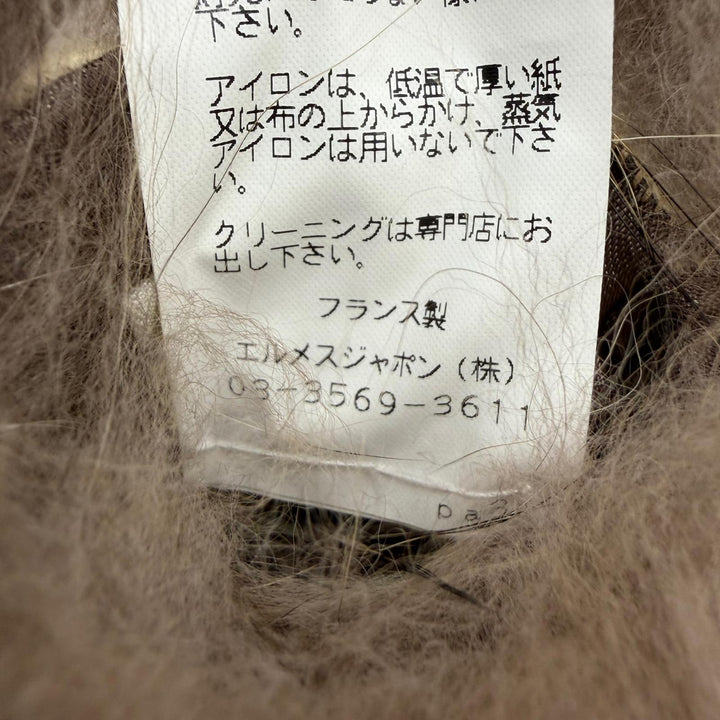 下さい。
アイロンは、低温で厚い紙
又は布の上からかけ、蒸気
アイロンは用いないで下さ
い。
クリーニングは専門店にお
出し下さい。
フランス製
エルメスジャポン(株)
03-3569-3611